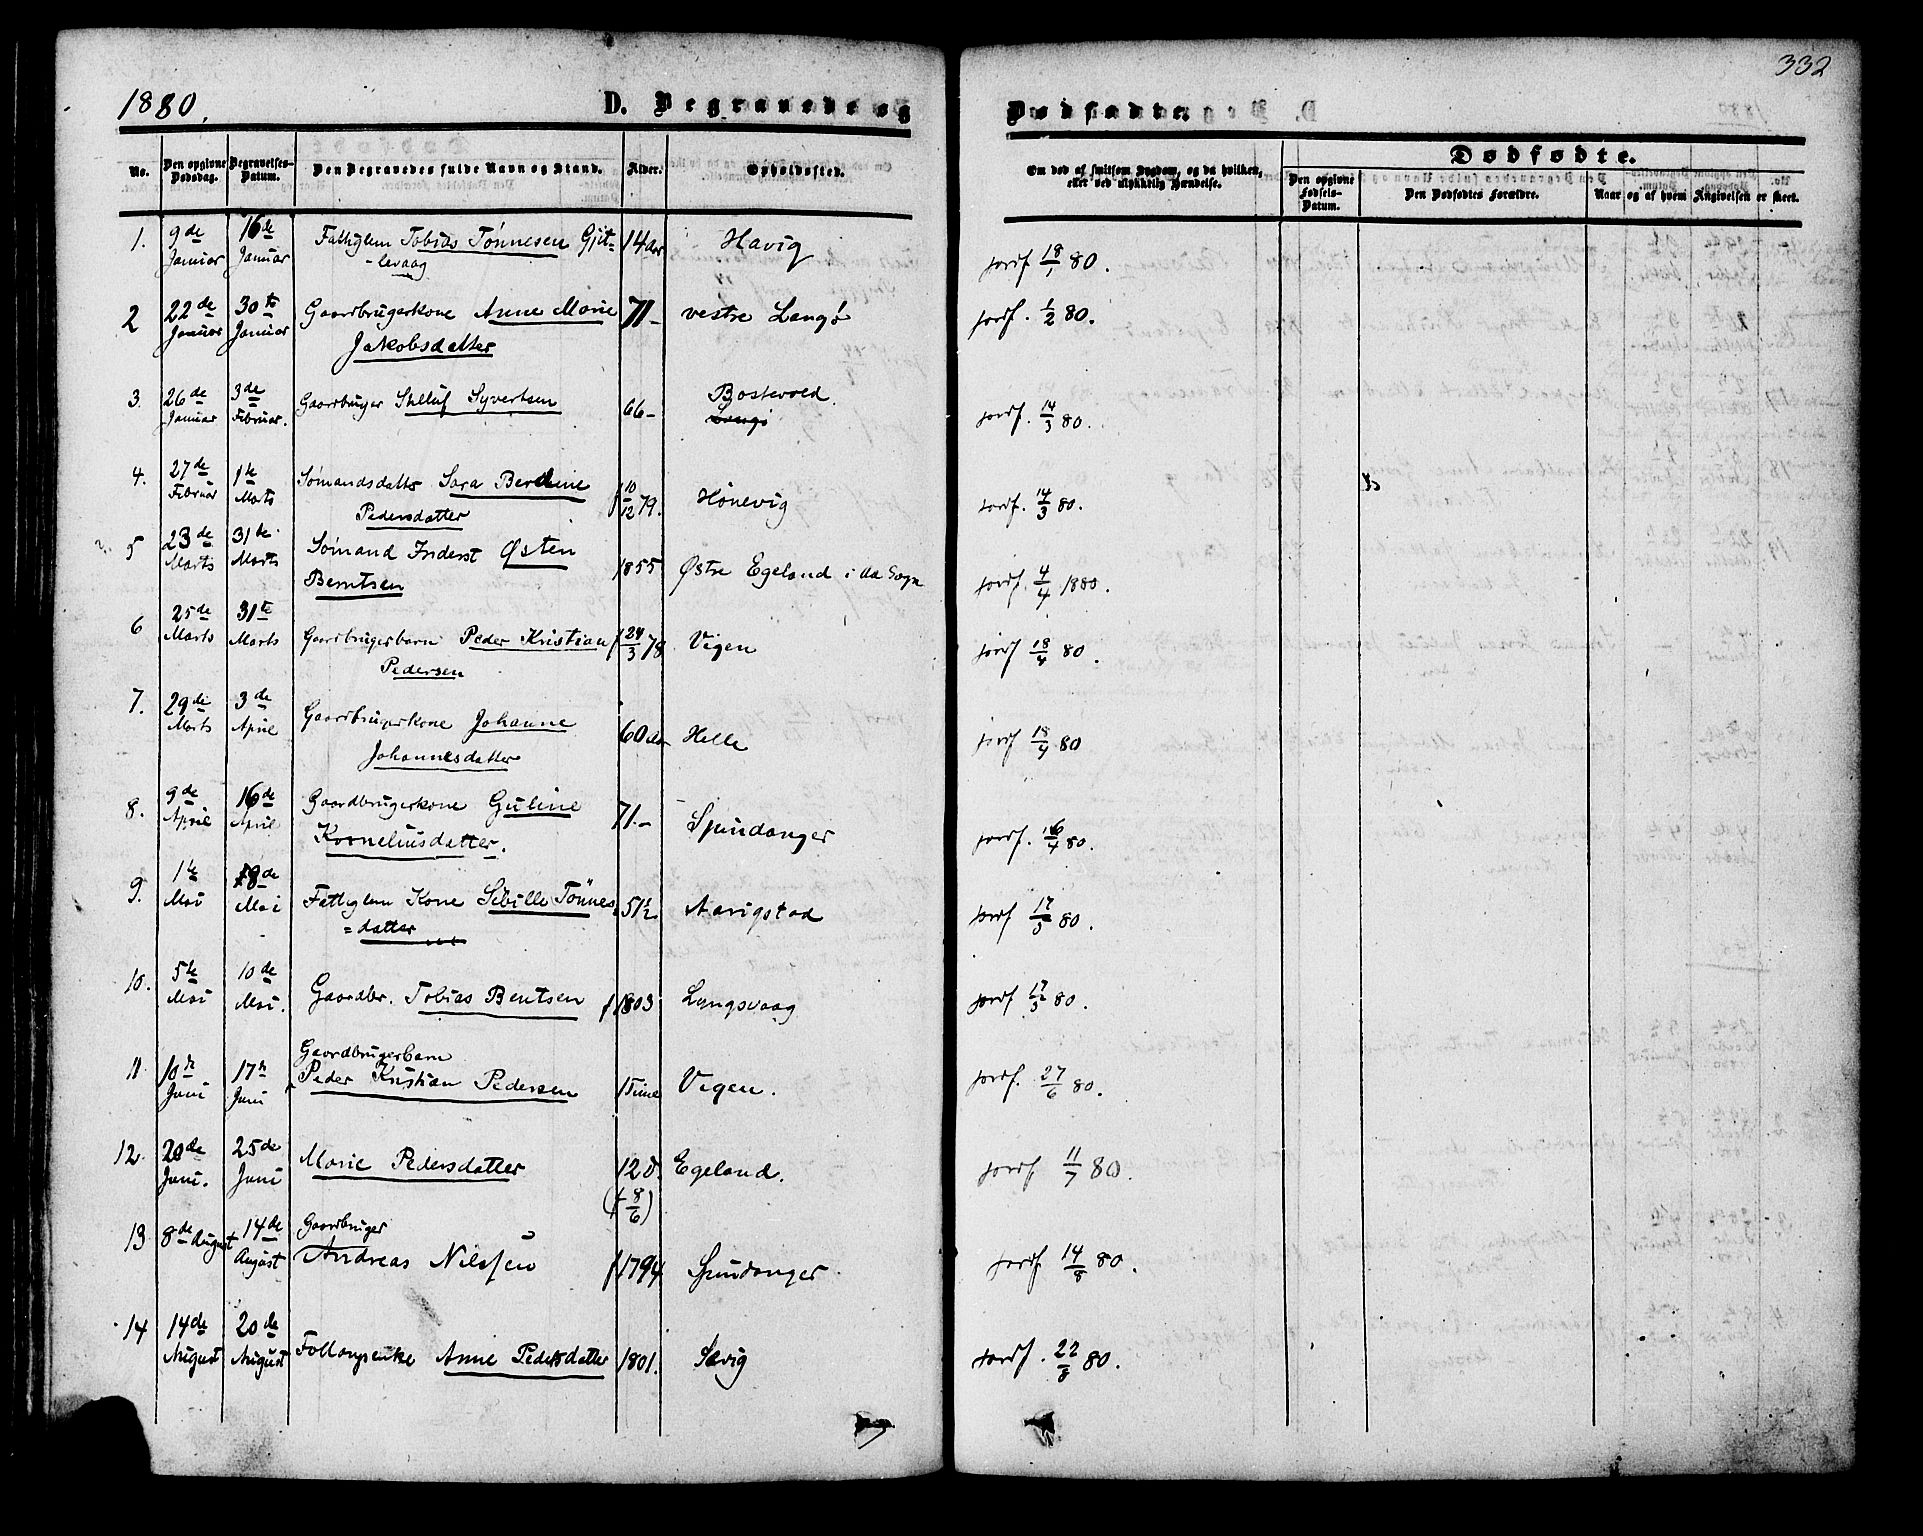 332
1880.
D. Begravede og
Dødfødte.
No.
Den opgivne Dødsdag.
Begravelses-Datum.
Den Begravedes fulde Navn og Stand.
Alder.
Opholdssted.
Om død af smitsom Sygdom, og da hvilken, eller ved ulykkelig Hændelse.
Dødfødte.
Den opgivne Fødsels-Datum.
Den Dødfødtes Forældre.
Naar og af hvem Angivelsen er skeet.
1. 9de Januar 16de Januar Fattiglem Tobias Tønnesen Gjit-
-levaag 14 aar Havig jordf 18/1 80.
2 22de Januar 30te Januar Gaardbrugerkone Anne Marie
Jakobsdatter 71 – vestre Langø jordf. 1/2 80.
3. 26de Januar 3de Februar. Gaardbruger Salluf Syvertsen 66 – Bostevold. jordf. 14/3 80.
Langø
4. 27de Februar 1te Marts Sømandsdatter Sara Berdine
Pedersdatter f 10/12 79. Hønevig jordf. 14/3 80.
5 23de Marts 31te Marts Sømand Inderst Østen
Berntsen 1855 Østre Egeland i da Sogn jordf. 4/4 1880.
6 25de Marts 31te Marts Gaardbrugerbarn Peder Kristian
Pedersen f 24/3 78 Vigen jordf 18/4 80.
7. 29de Marts 3de April Gaardbrugerkone Johanne
Johannesdatter 60 aar Helle jordf 18/4 80
8. 9de April 16de April Gaardbrugerkone Guline
Korneliusdatter. 71. – Spindanger jordf. 16/4 80.
9. 1te Mai 8de Mai Fattiglem Kone Sibille Tönnes
=datter 51½ Aavigstad jordf 17/5 80.
10. 5te Mai 10de Mai. Gaardbr. Tobias Bentsen f 1803 Langsvaag jordf 17/5 80.
11. 10te Juni 17te Juni Gaardbrugerbarn
Peder Kristian Pedersen 1 Time Vigen. jordf. 27/6 80.
12. 20de Juni. 25de Juni Marie Pedersdatter 12 D. Egeland. jordf 11/7 80.
(f 8/6)
13 8de August 14de August Gaardbruger
Andreas Nilssen f 1794 Spindanger jordf 14/8 80.
14 14de August 20de August Follaugsenke Anne Pedersdatter 1801. Sævig jordf. 22/8 80.